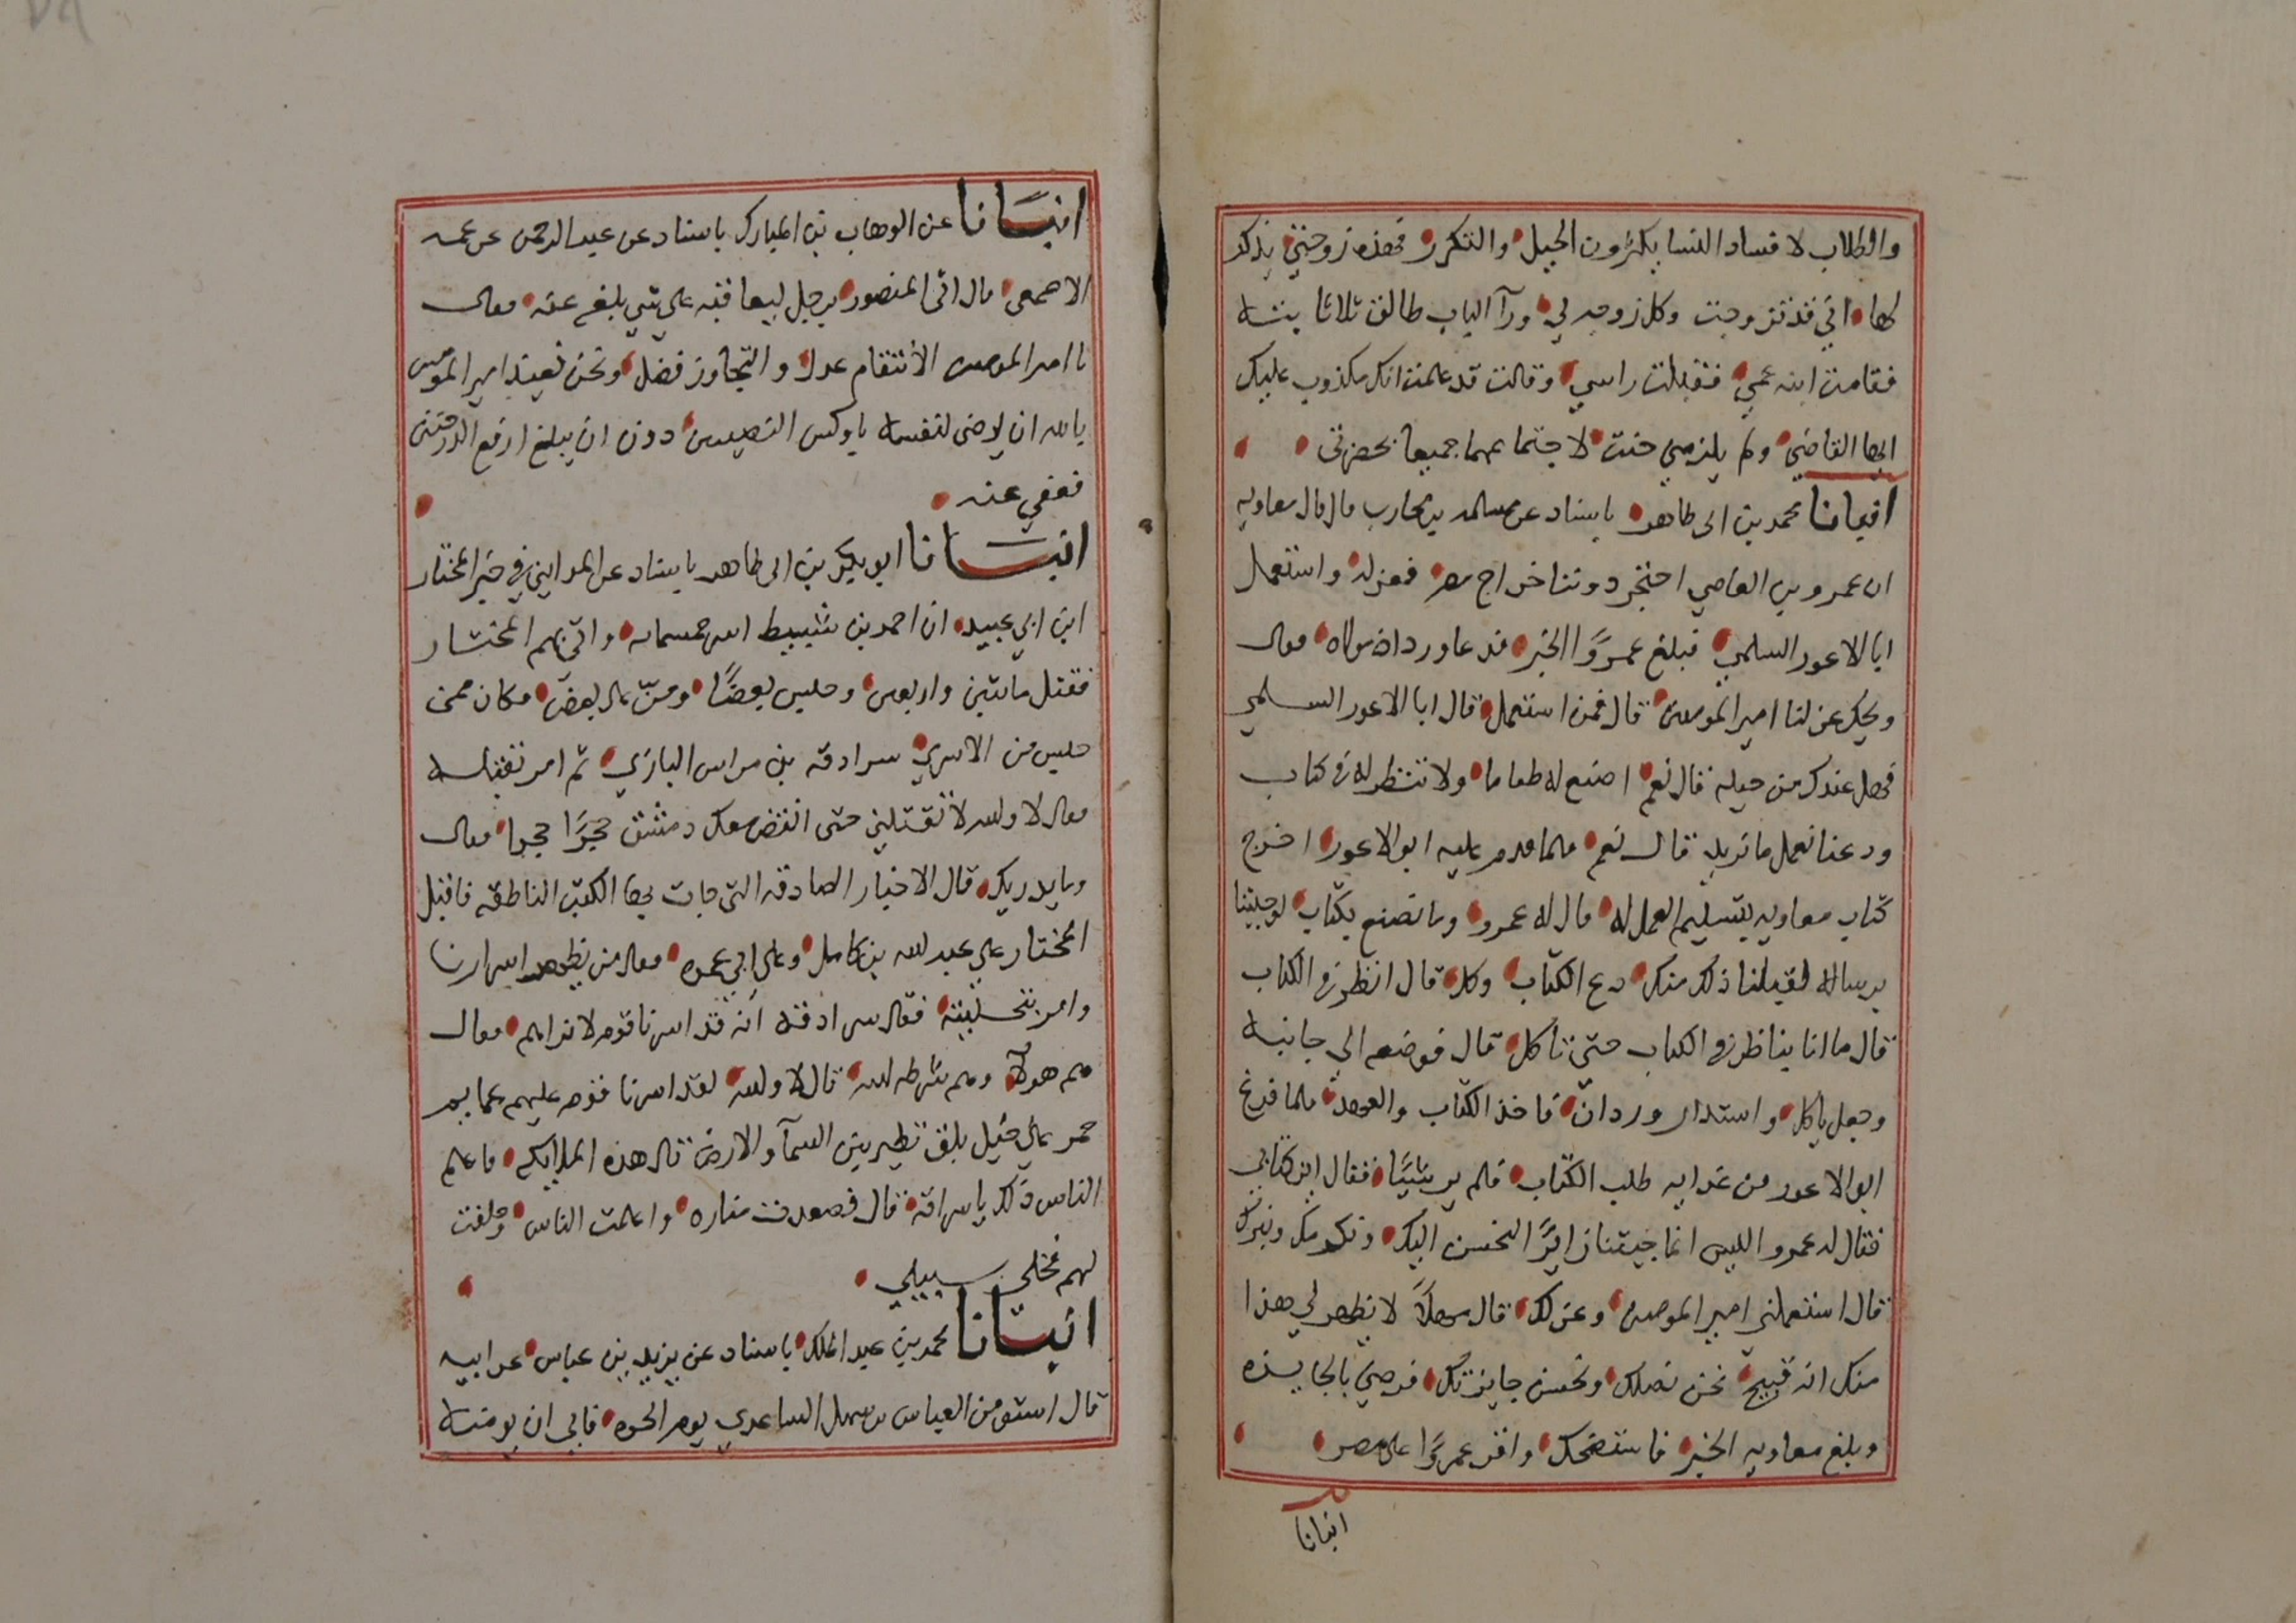 والطلاب لافساد النسا يكثرون الحيل والتكرر فهذه زوجتي يذكر
لها اني قد تزوجت وكل زوجه لي ورآ الباب طالق ثلاثا بته
فقامت ابنه عمي فقبلت راسي وقالت قد علمت انك مكذوب عليك
ايها القاضي ولم يلزمني حنث لاجتماعهما جميعا بحضرتي
انبانا محمد بن ابى طاهر باسناد عن مسلمه بن محارب قال قال معاويه
ان عمرو بن العاصي احتجز دوننا خراج مصر فعزله واستعمل
ابا الاعور السلمي فبلغ عمرًوا الخبر فدعا وردان مولاه فقال
ويحك عزلنا امير المومنين قال فمن استعمل قال ابا الاعور السلمي
فهل عندك من حيله قال نعم اصنع له طعاما ولا تنتظر له في كتاب
ودعنا نعمل ما نريد قال نعم فلما قدم عليه ابو الاعور اخرج
كتاب معاويه بتسليم العمل له قال له عمرو وما تصنع بكتاب لو جيتنا
برساله لقبلنا ذلك منك دع الكتاب وكل قال انظر في الكتاب
قال ما انا بناظر في الكتاب حتى تأكل قال فوضعه الي جانبه
وجعل ياكل واستدار وردان فاخذ الكتاب والعهد فلما فرغ
ابو الاعور من غدايه طلب الكتاب فلم ير شيًا فقال اين كتابى
فقال له عمرو اليس انما جيتنا زايرًا لنحسن اليك ونكرمك ونبرك
قال استعملني امير المومنين وعزلك قال مهلاً لا يظهر لي هذا
منك انه قبيح نحن نصلك ونحسن جايزتك فرضي بالجايزه
وبلغ معاويه الخبر فاستضحك واقر عمرًوا على مصر
انبانا
انبانا عن الوهاب بن المبارك باسناد عن عبد الرحمن عن عمه
الاصمعى قال اتى المنصور برجل ليعاقبه على شي بلغ عنه فقال
يا امير المومنين الأنتقام عدل والتجاوز فضل ونحن نعيذ امير المومنين
بالله ان يرضى لنفسه باوكس النصيبين دون ان يبلغ ارفع الدرجتين
فعفي عنه
انبانا ابو بكر بن ابى طاهر باسناد عن المدايني في خبر المختار
ابن ابي عبيد ان احمد بن شبيط اسر خمسمايه واتى بهم المختار
فقتل مايتين واربعين وحبس بعضًا ومنّ على بعض فكان ممن
حبس من الاسري سرادقه بن مراس البازي ثم امر بقتله
فقال لا والله لا تقتلني حتى انقض معك دمشق حجرًا حجرا فقال
وما يدريك قال الاخبار الصادقه التى جات بها الكتب الناطقه فاقبل
المختار علي عبد الله بن كامل وعلى ابي عمره فقال من يظهر اسرارنا
وامر بتخليته فقال سرادقه انه قد اسرنا قوم لا نراهم فقال
هم هولآ وهم شرطه الله قال لا والله لقد اسرنا قوم عليهم عمايم
حمر على خيل بلق تطير بين السمآ والارض قال هذه الملايكه فاعلم
الناس ذلك ياسراقه قال فصعدت مناره واعلمت الناس وحلفت
لهم فخلى سبيلي
انبانا محمد بن عبد الملك باسناد عن يزيد بن عباس عن ابيه
قال استومن العباس بن سهل الساعدي يوم الحره فابى ان يومنه